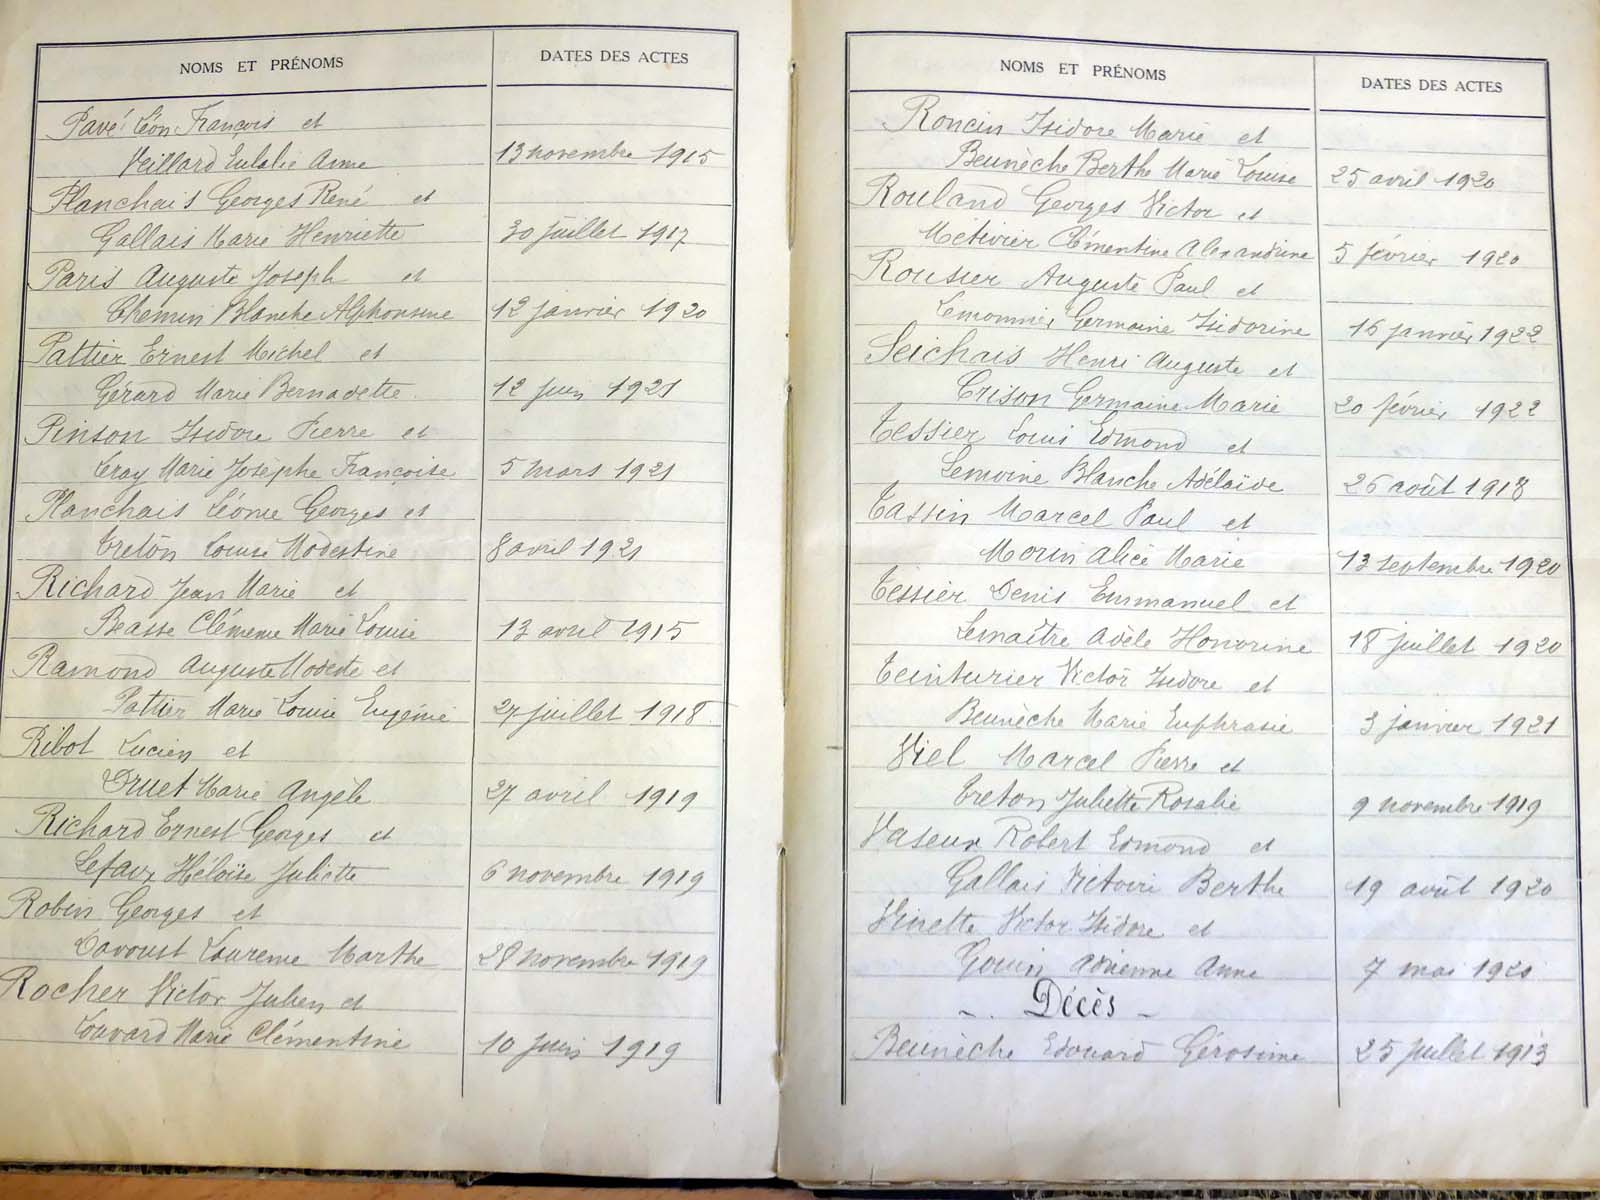 NOMS ET PRÉNOMS DATES DES ACTES
Pavé Léon François et
Veillard Eulalie Anne 13 novembre 1915
Planchais Georges René et
Gallais Marie Henriette 30 juillet 1917
Paris Auguste Joseph et
Chemin Blanche Alphonsine 12 janvier 1920
Pattier Ernest Michel et
Gérard Marie Bernadette 12 juin 1921
Pinson Isidore Pierre et
Leray Marie Josèphe Françoise 5 mars 1921
Planchais Léonce Georges et
Creton Louise Modestine 8 avril 1921
Richard Jean Marie et
Beasse Clémence Marie Louise 13 avril 1915
Ramond Auguste Modeste et
Pattier Marie Louise Eugénie 27 juillet 1918
Ribot Lucien et
Druet Marie Angèle 27 avril 1919
Richard Ernest Georges et
Lefaux Héloïse Juliette 6 novembre 1919
Robin Georges et
Davoust Laurence Marthe 28 novembre 1919
Rocher Victor Julien et
Louvard Marie Clémentine 10 juin 1919
NOMS ET PRÉNOMS DATES DES ACTES
Roncin Isidore Marie et
Beunèche Berthe Marie Louise 25 avril 1920
Rouland Georges Victor et
Métivier Clémentine Alexandrine 5 février 1920
Rousier Auguste Paul et
Lemonnier Germaine Isidorine 16 janvier 1922
Seichais Henri Auguste et
Crison Germaine Marie 20 février 1922
Tessier Louis Edmond et
Lemoine Blanche Adélaïde 26 août 1918
Tassin Marcel Paul et
Morin Alice Marie 13 septembre 1920
Tessier Denis Emmanuel et
Lemaître Adèle Honorine 18 juillet 1920
Teinturier Victor Isidore et
Beunèche Marie Euphrasie 3 janvier 1921
Viel Marcel Pierre et
Creton Juliette Rosalie 9 novembre 1919
Vaseux Robert Edmond et
Gallais Victoire Berthe 19 août 1920
Vinette Victor Isidore et
Gouin Adrienne Anne 7 mai 1920
Décès
Beunèche Edouard Gérosime 25 juillet 1913